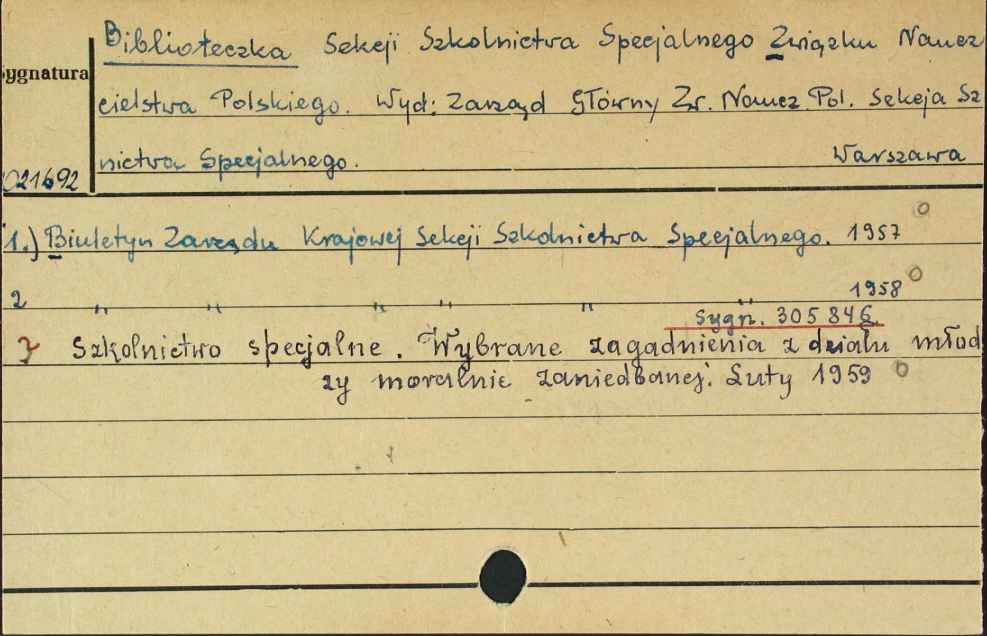 Biblioteczka Sekcji Szkolnictwa Specjalnego Związku Naucz
ygnatura
cielstwa Polskiego. Wyd: Zarząd Główny Zw. Naucz. Pol. Sekcja Sz
nictwa Specjalnego. Warszawa
021692
1.) Biuletyn Zarządu Krajowej Sekcji Szkolnictwa Specjalnego. 1957
2 " " " " " " 1958
Sygn. 305846
3 Szkolnictwo specjalne. Wybrane zagadnienia z działu młod
zy moralnie zaniedbanej. Luty 1959